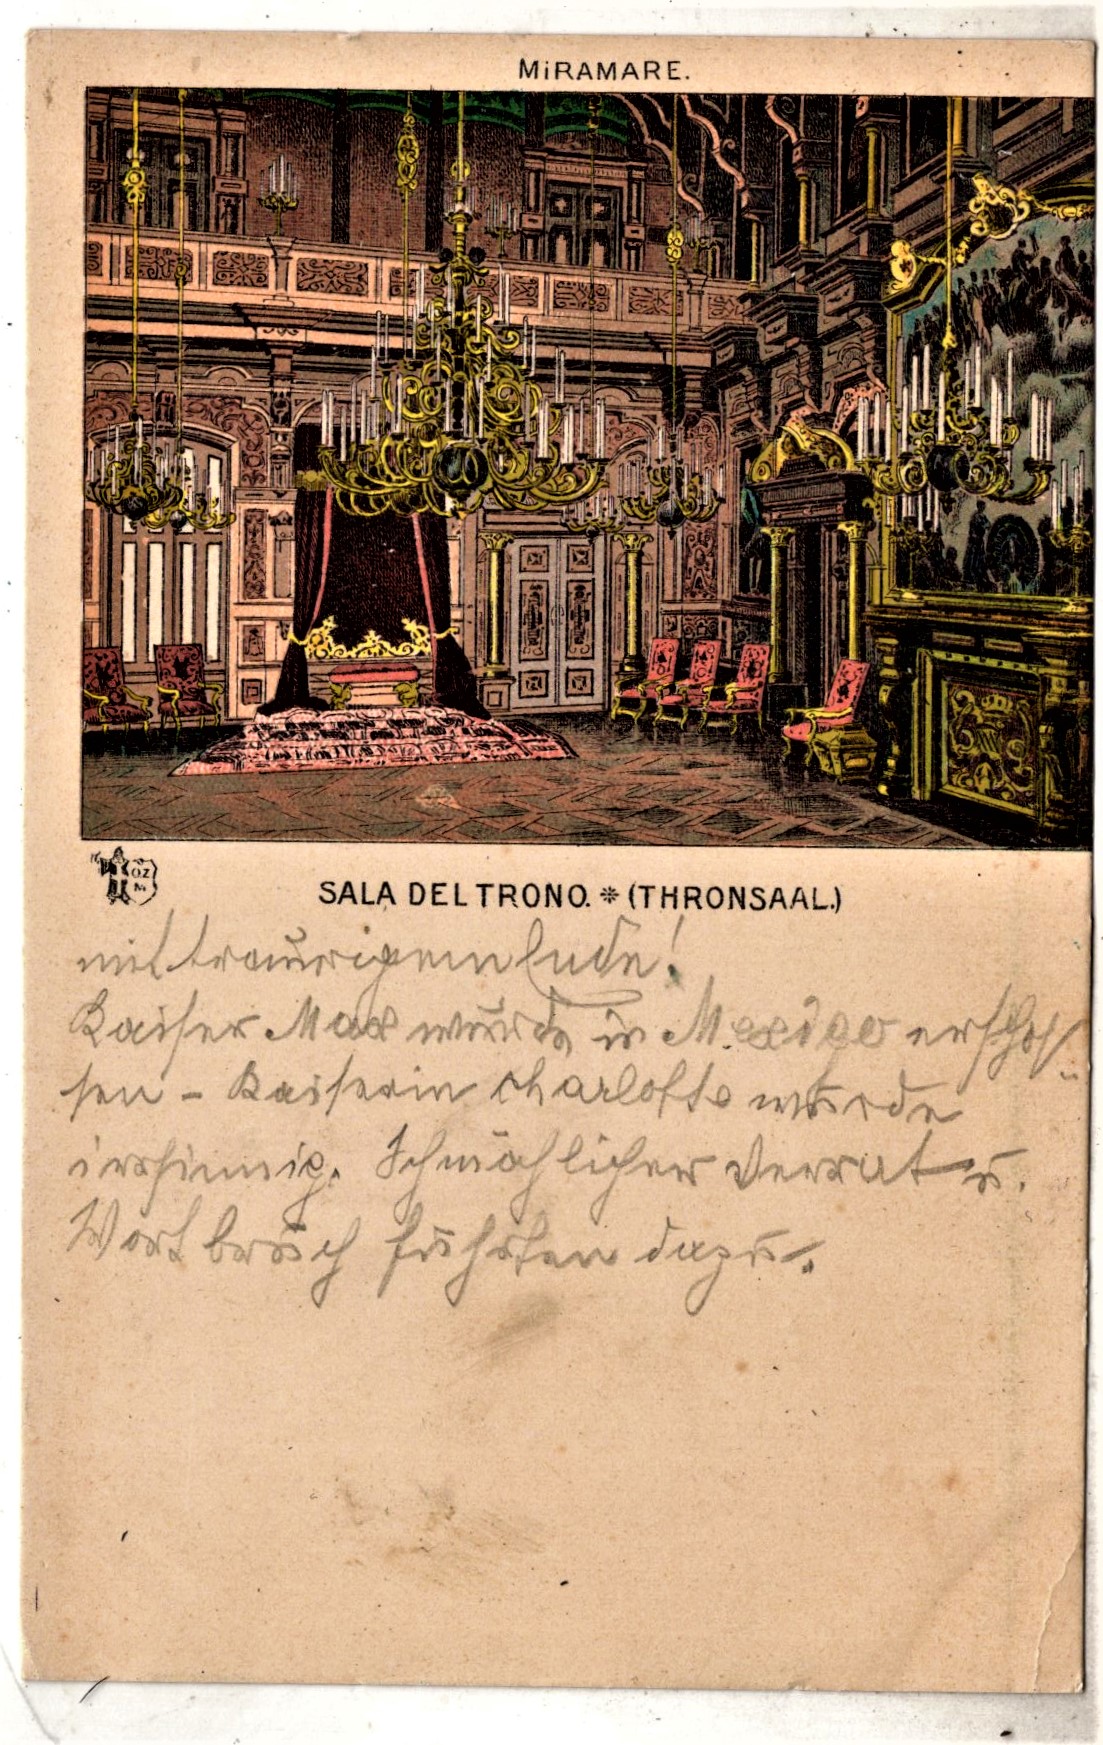 MiRAMARE.
OZ
M
SALA DEL TRONO. * (THRONSAAL.)
mit traurigem Ende!
Kaiser Max wurde in Mexico erschos
sen - Kaiserin Charlotte wurde
irrsinnig. Schmählicher Verrat u.
Wortbruch führten dazu.